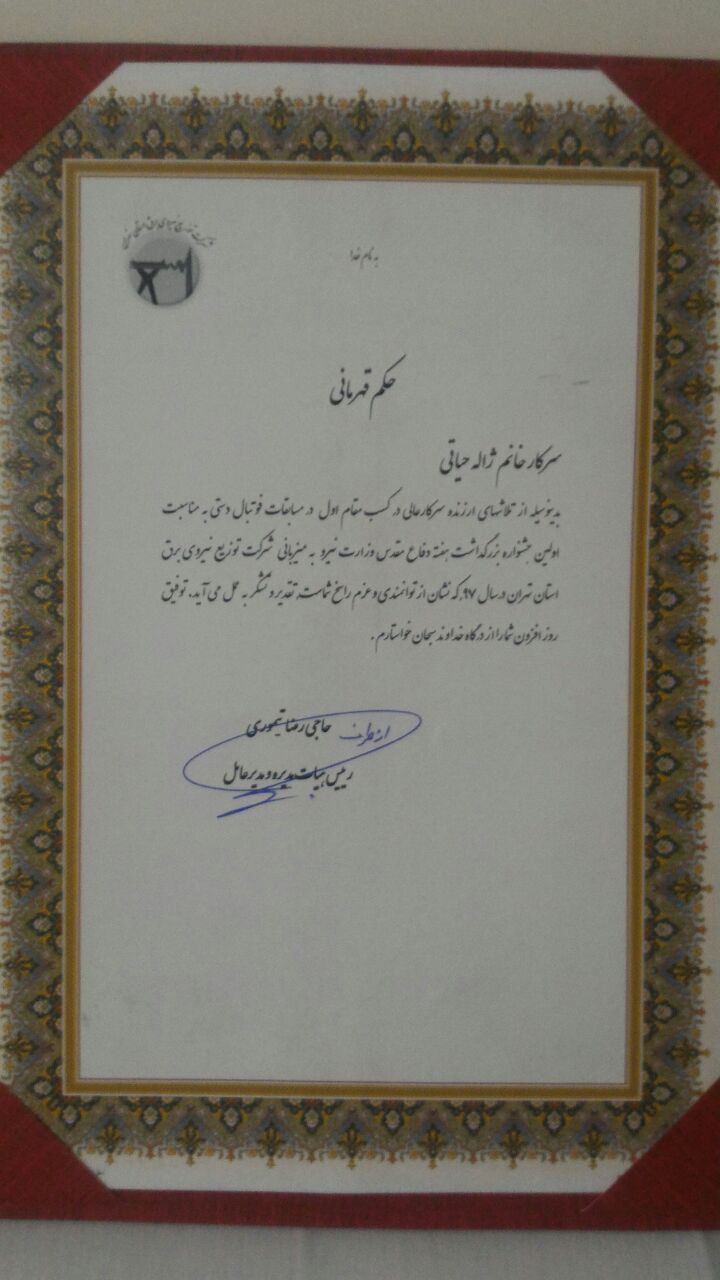 شرکت توزیع نیروی برق استان تهران
به نام خدا
حکم قهرمانی
سرکار خانم ژاله حیاتی
بدینوسیله از تلاشهای ارزنده سرکارعالی در کسب مقام اول در مسابقات فوتبال دستی به مناسبت
اولین جشنواره بزرگداشت هفته دفاع مقدس وزارت نیرو به میزبانی شرکت توزیع نیروی برق
استان تهران در سال ۹۷، که نشان از توانمندی و عزم راسخ شماست، تقدیر و تشکر به عمل می آید. توفیق
روز افزون شما را از درگاه خداوند سبحان خواستارم.
از طرف حاجی رضا تیموری
رییس هیات مدیره و مدیر عامل